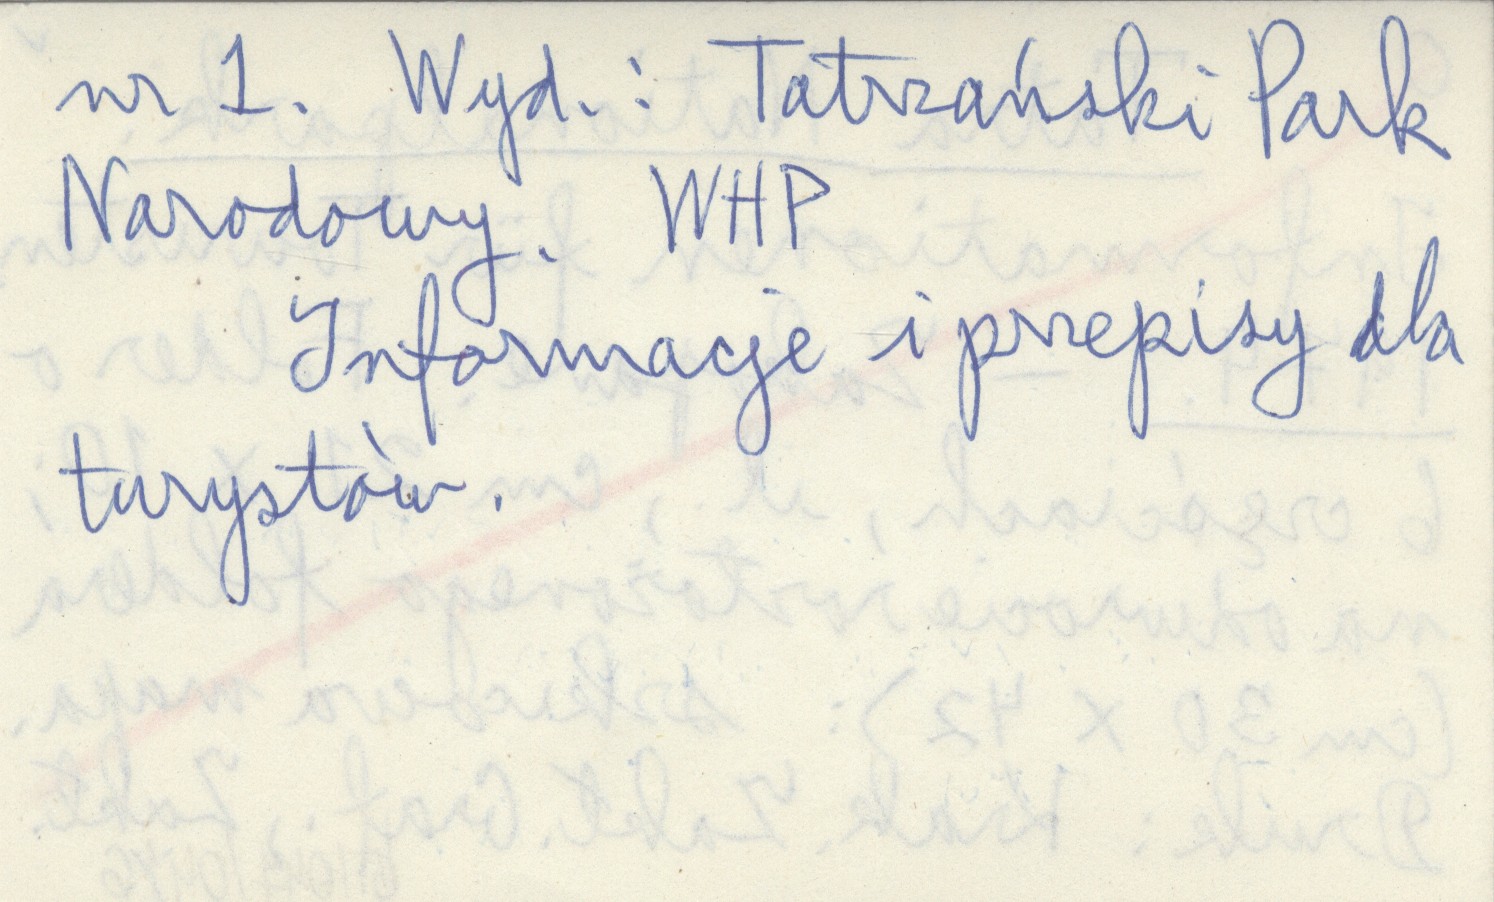 nr 1. Wyd.: Tatrzański Park
Narodowy. WHP
Informacje i przepisy dla
turystów.